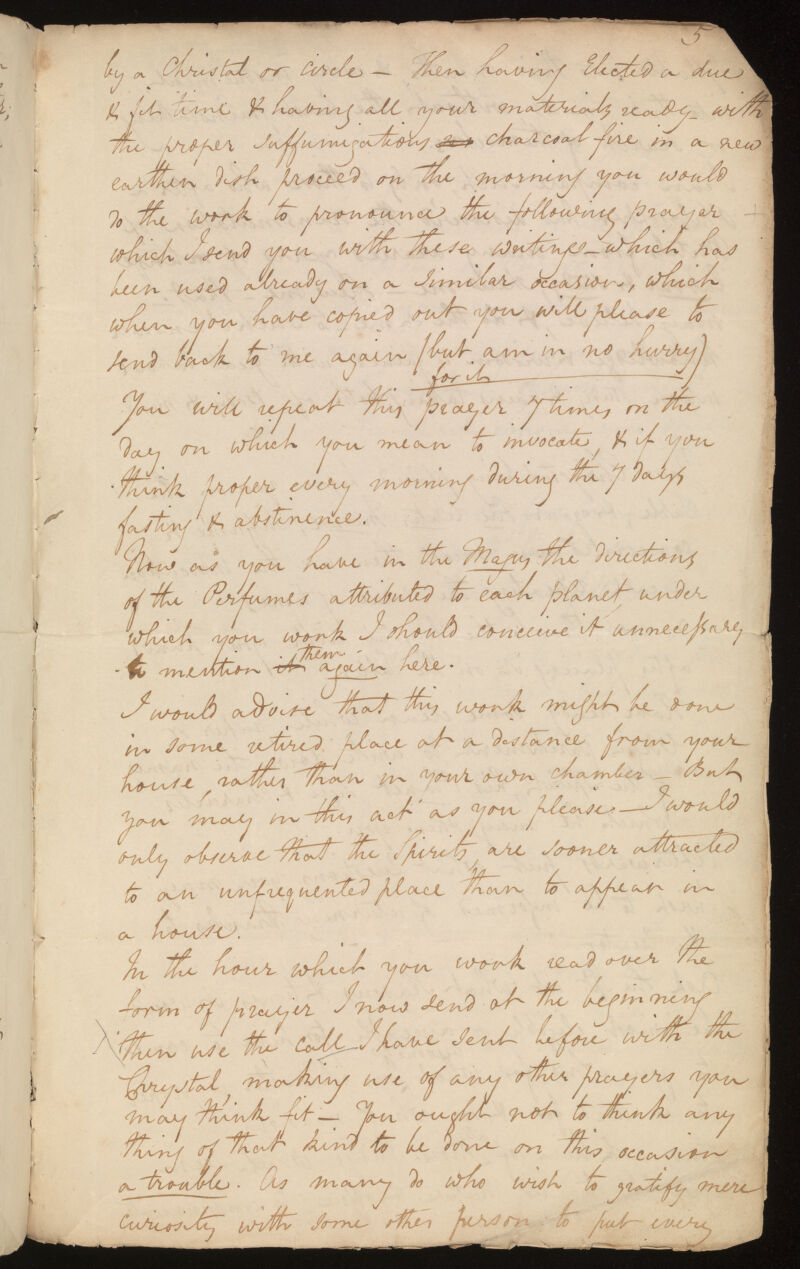 5
by a Christal or circle — Then having Elected a due
& fit time & having all your materials ready with
the proper suffumigations charcoal fire in a new
earthen dish proceed on the morning you would
do the work to pronounce the following prayer —
which I send you with these writings — which has
been used already on a similar occasion, which
when you have copied out you will please to
send back to me again (but am in no hurry)
for it
You will repeat this prayer 7 times on the
day on which you mean to invocate, & if you
think proper every morning during the 7 days
fasting & abstinence.
Now as you have in the Magus the directions
of the Perfumes attributed to each planet under
which you work I should conceive it unnecessary
to mention it them again here.
I would advise that this work might be done
in some retired place at a distance from your
house, rather than in your own chamber — But
you may in this act as you please — I would
only observe that the Spirits, are sooner attracted
to an unfrequented place than to appear in
a house.
In the hour which you work read over the
form of prayer I now send at the beginning
then use the call I have sent before with the
Chrystal, making use of any other prayers you
may think fit — You ought not to think any
thing of that kind to be done on this occasion
a trouble. As many do who wish to gratify mere
curiosity with some other person to put every